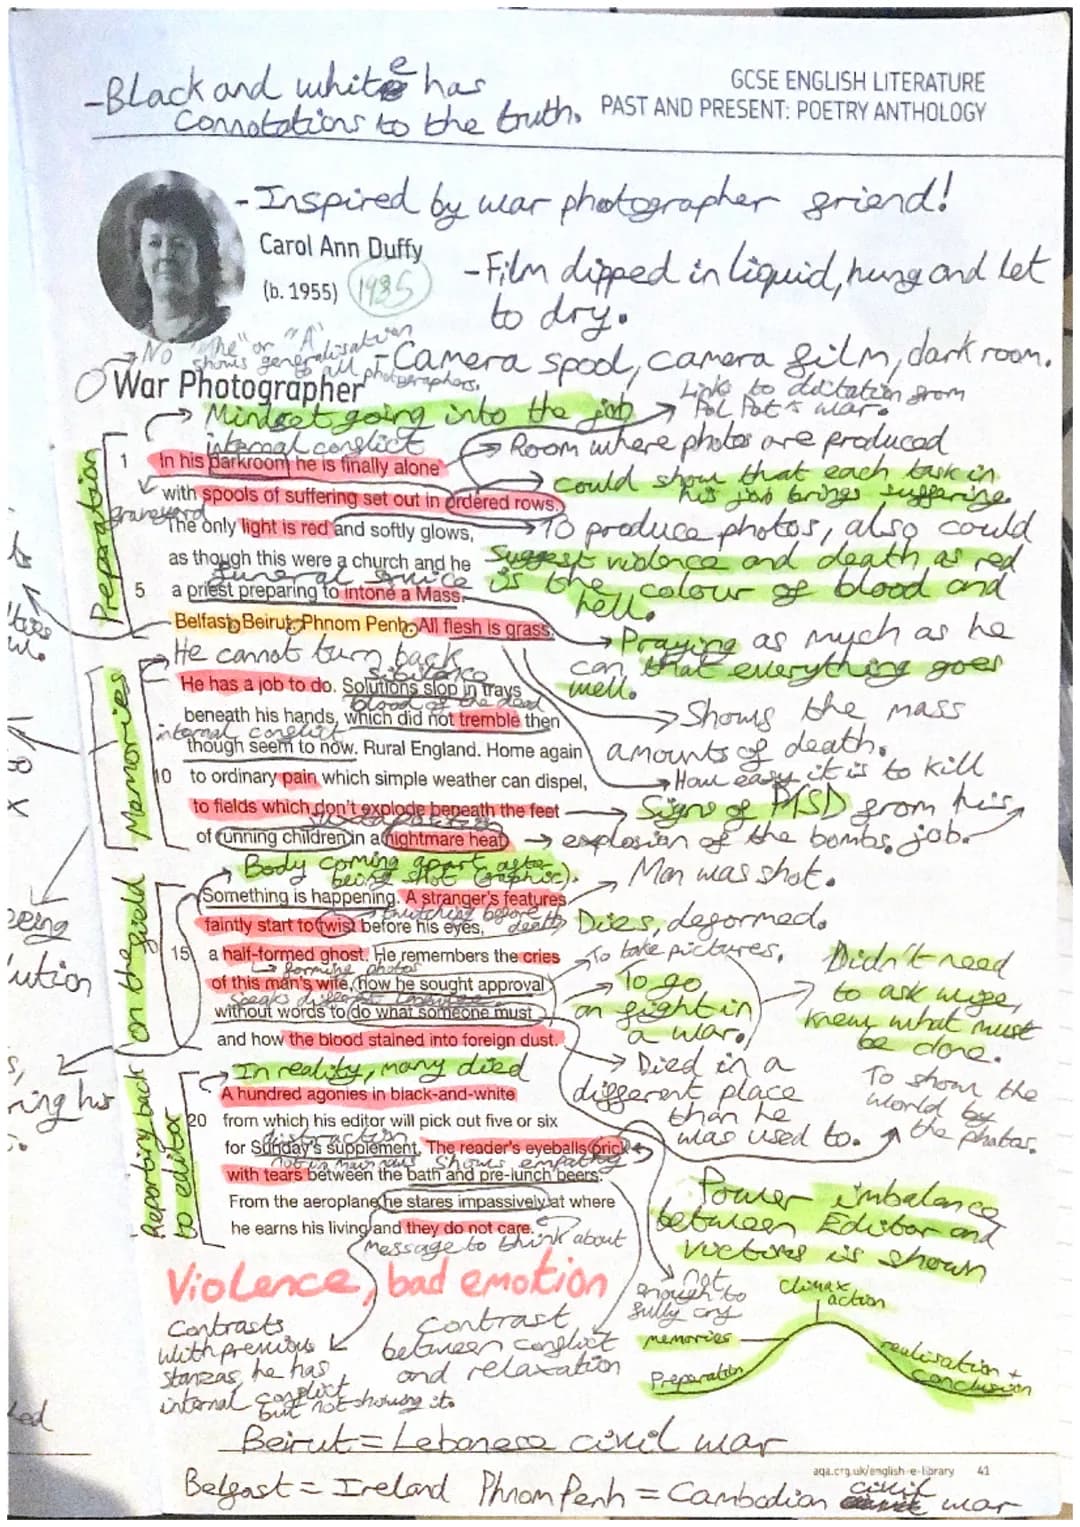 -Black and white has
connotations to the truth.
GCSE ENGLISH LITERATURE
PAST AND PRESENT: POETRY ANTHOLOGY
-Inspired by war photographer friend!
Carol Ann Duffy
(b. 1955) 1985
-Film dipped in liquid, hung and let
to dry.
No "The" or "A"
shows generalisation
to all photographers.
-Camera spool, camera film, dark room.
War Photographer
Links to dictation from
Pol Pot's war.
Mindset going into the job
internal conflict
Room where photos are produced
Preparation
1 In his darkroom he is finally alone
could show that each task in
his job brings suffering.
with spools of suffering set out in ordered rows.
graveyard
The only light is red and softly glows,
To produce photos, also could
suggest violence and death as red
is the colour of blood and
hell.
as though this were a church and he
funeral service
5 a priest preparing to intone a Mass.
Belfast. Beirut. Phnom Penh. All flesh is grass.
Praying as much as he
can that everything goes
well.
He cannot turn back
Memories
sibilance
He has a job to do. Solutions slop in trays
blood of the dead
beneath his hands, which did not tremble then
Shows the mass
amounts of death.
internal conflict
though seem to now. Rural England. Home again
10 to ordinary pain which simple weather can dispel,
How easy it is to kill
to fields which don't explode beneath the feet
Signs of PTSD from his
job.
of running children in a nightmare heat.
explosion of the bombs.
Body coming apart after
being shot (graphic).
Man was shot.
on the field
Something is happening. A stranger's features
twitching before
death
faintly start to twist before his eyes,
Dies, deformed.
15 a half-formed ghost. He remembers the cries
To take pictures.
forming photos
of this man's wife, how he sought approval
To go
on fight in
a war.
Didn't need
to ask wife,
knew what must
be done.
speaks different language
without words to do what someone must
and how the blood stained into foreign dust.
Died in a
different place
than he
was used to.
To show the
world by
the photos.
In reality, many died
Reporting back
to editor
A hundred agonies in black-and-white
20 from which his editor will pick out five or six
distraction
for Sunday's supplement. The reader's eyeballs prick
not in main news
shows empathy
with tears between the bath and pre-lunch beers.
From the aeroplane he stares impassively at where
he earns his living and they do not care.
message to think about
Power imbalance
between Editor and
victims is shown
Violence, bad emotion
not
enough to
fully cry
Contrasts
with previous
stanzas, he has
internal conflict
but not showing it.
contrast
between conflict
and relaxation
Climax,
action
memories
Preparation
realisation +
conclusion
Beirut = Lebanese civil war
aqa.org.uk/english-e-library 41
Belfast = Ireland Phnom Penh = Cambodian civil war
being